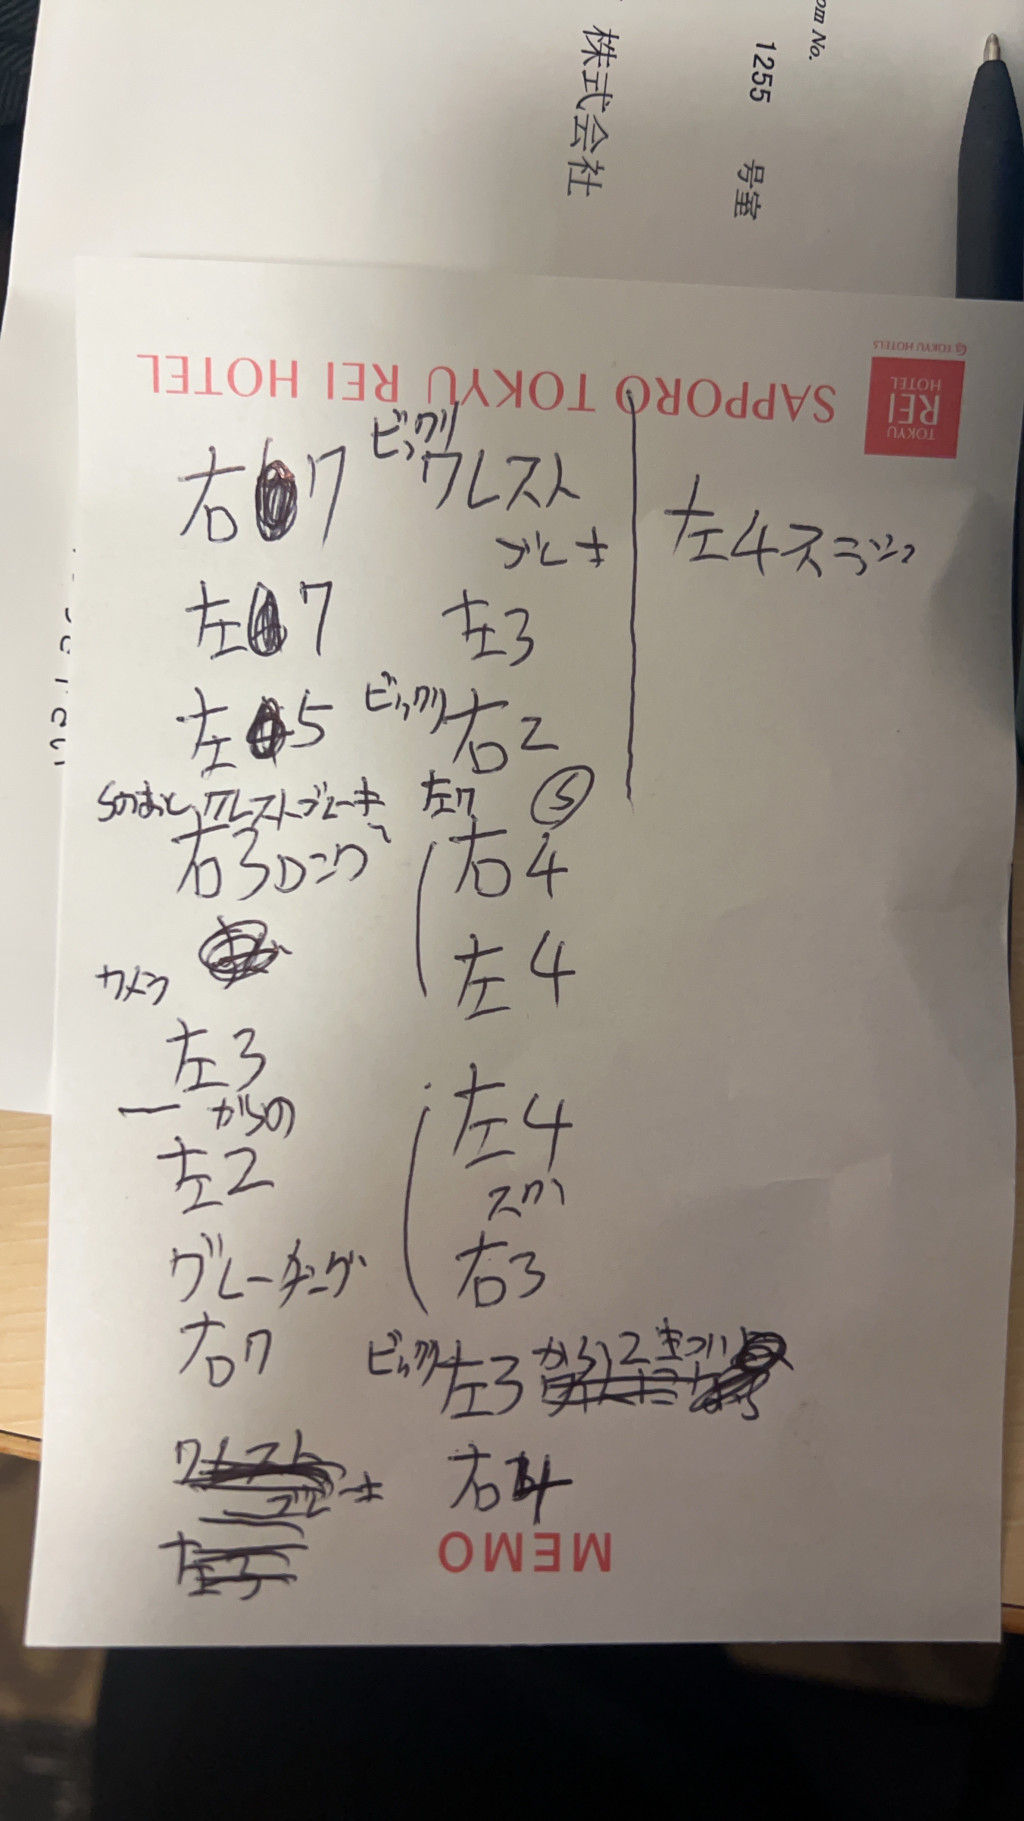 om No.
1255 号室
株式会社
TOKYU HOTELS
TOKYU REI HOTEL
SAPPORO TOKYU REI HOTEL
右7
左7
左5
Sのあと クレストブレーキ
右3ロング
カメラ
左3
ー からの
左2
グレーチング
右7
クレスト
ブレーキ
左3
ビックリ
クレスト
ブレーキ
左3
ビックリ 右2
左7 S
右4
左4
左4
スグ
右3
ビックリ 左3 から2きつい
右4
左4
MEMO